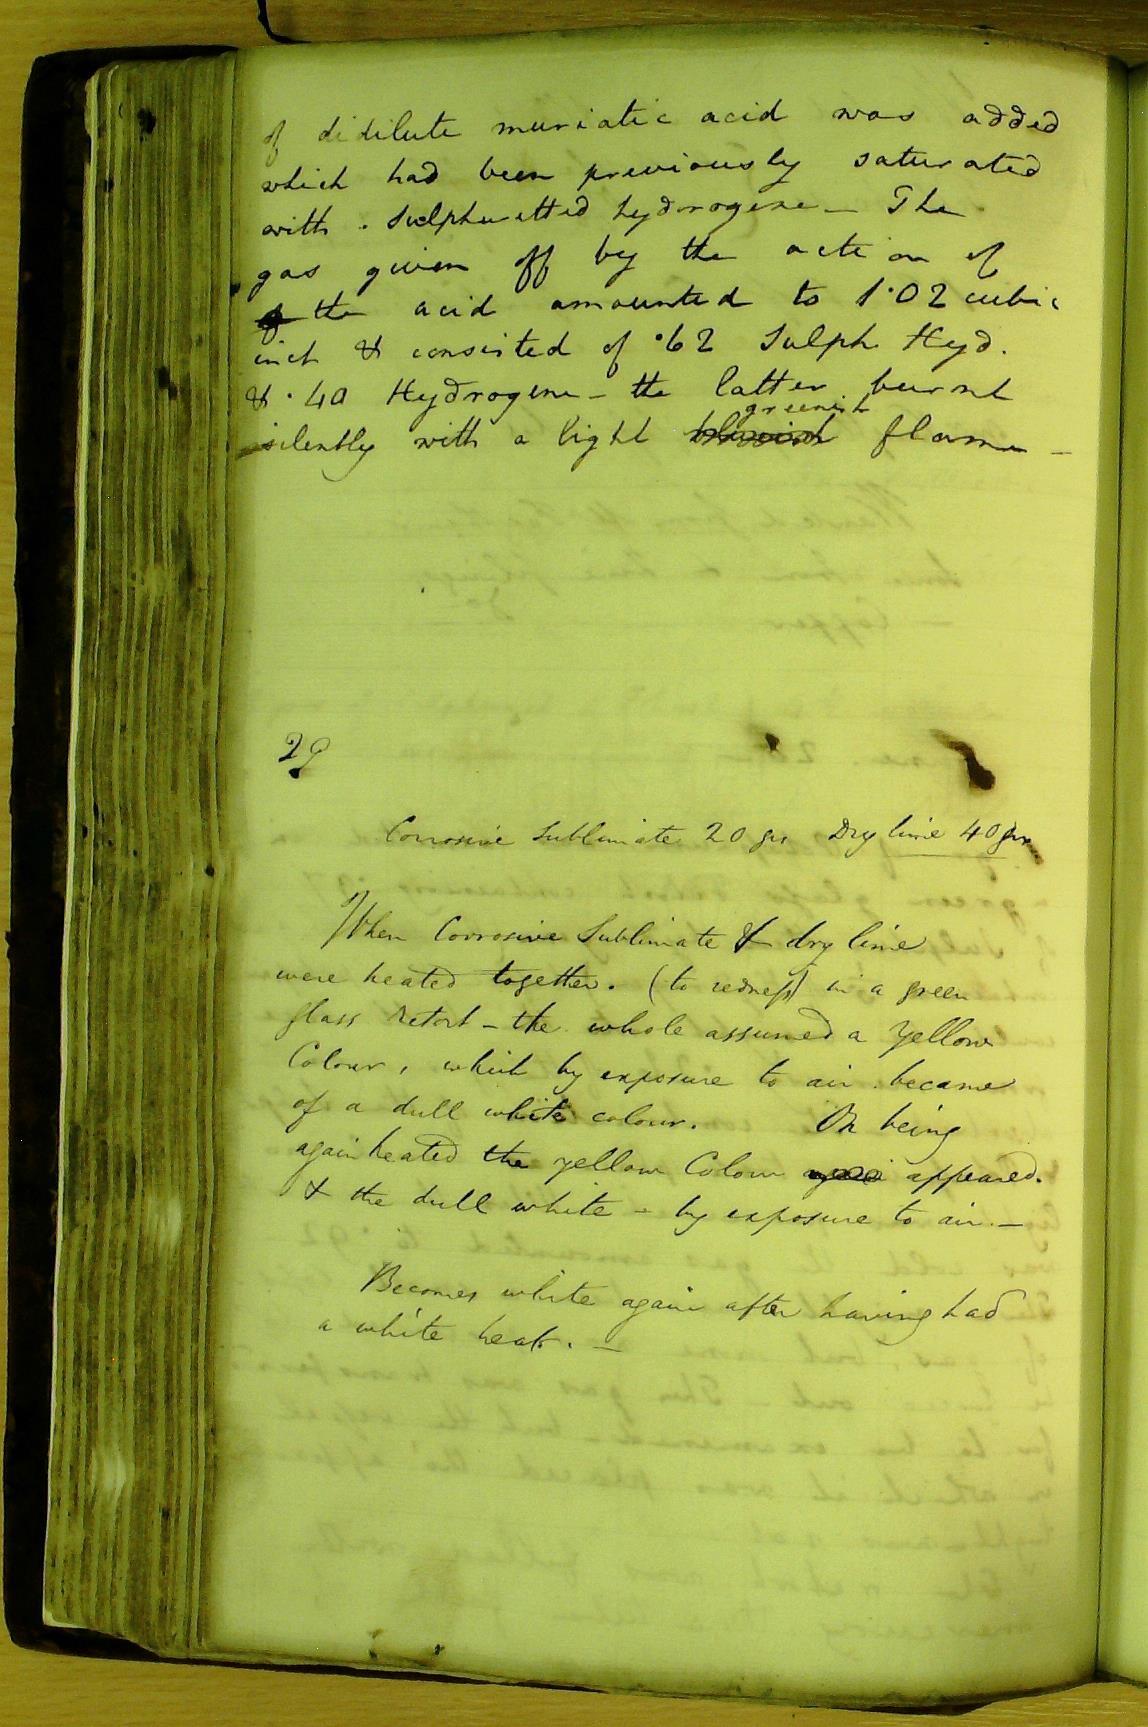 of didilute muriatic acid was added
which had been previously saturated
with . Sulphuretted hydrogene – The
gas given off by the action of
of the acid amounted to 1·02 cubic
inch & consisted of ·62 Sulph Hyd.
& ·40 Hydrogene – the latter burnt
greenish
silently with a light blueish flame –
29
Corrosive Sublimate 20 grs Dry lime 40 grs
When Corrosive Sublimate & dry lime
were heated together. (to redness) in a green
glass Retort – the whole assumed a yellow
Colour, which by exposure to air became
of a dull white colour. On being
again heated the yellow Colour appeared.
& the dull white – by exposure to air. –
Becomes white again after having had
a white heat. –